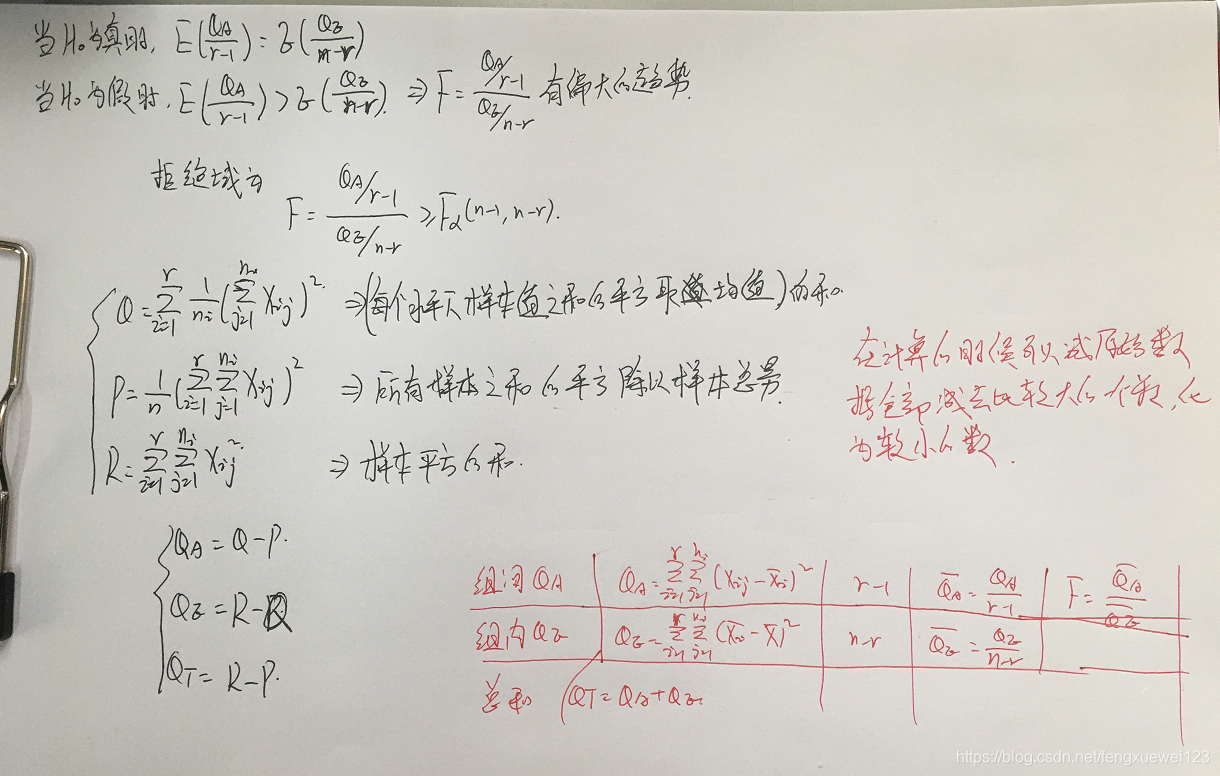 当H₀为真时, E(QA/r-1) = E(QE/n-r)
当H₀为假时, E(QA/r-1) > E(QE/n-r). ⇒ F = (QA/r-1)/(QE/n-r) 有偏大的趋势.
拒绝域为
F = (QA/r-1)/(QE/n-r) ≥ Fα(n-1, n-r).
Q = Σ_{i=1}^{r} 1/nᵢ (Σ_{j=1}^{nᵢ} Xᵢⱼ)². ⇒ (每个水平下样本值之和的平方取均值) 的和.
P = 1/n (Σ_{i=1}^{r} Σ_{j=1}^{nᵢ} Xᵢⱼ)² ⇒ 所有样本之和的平方除以样本总量.
R = Σ_{i=1}^{r} Σ_{j=1}^{nᵢ} Xᵢⱼ² ⇒ 样本平方的和.
在计算的时候可以试原始数
据全部减去比较大的个数, 化
为较小的数.
QA = Q-P.
QE = R-Q
QT = R-P.
组间QA QA = Σ_{i=1}^{r} Σ_{j=1}^{nᵢ} (Xᵢⱼ - X̄ᵢ)² r-1 Q̄A = QA/r-1 F = Q̄A/Q̄E
组内QE QE = Σ_{i=1}^{r} Σ_{j=1}^{nᵢ} (X̄ᵢ - X̄)² n-r Q̄E = QE/n-r
总和 QT = QA + QE.
https://blog.csdn.net/fengxuewei123